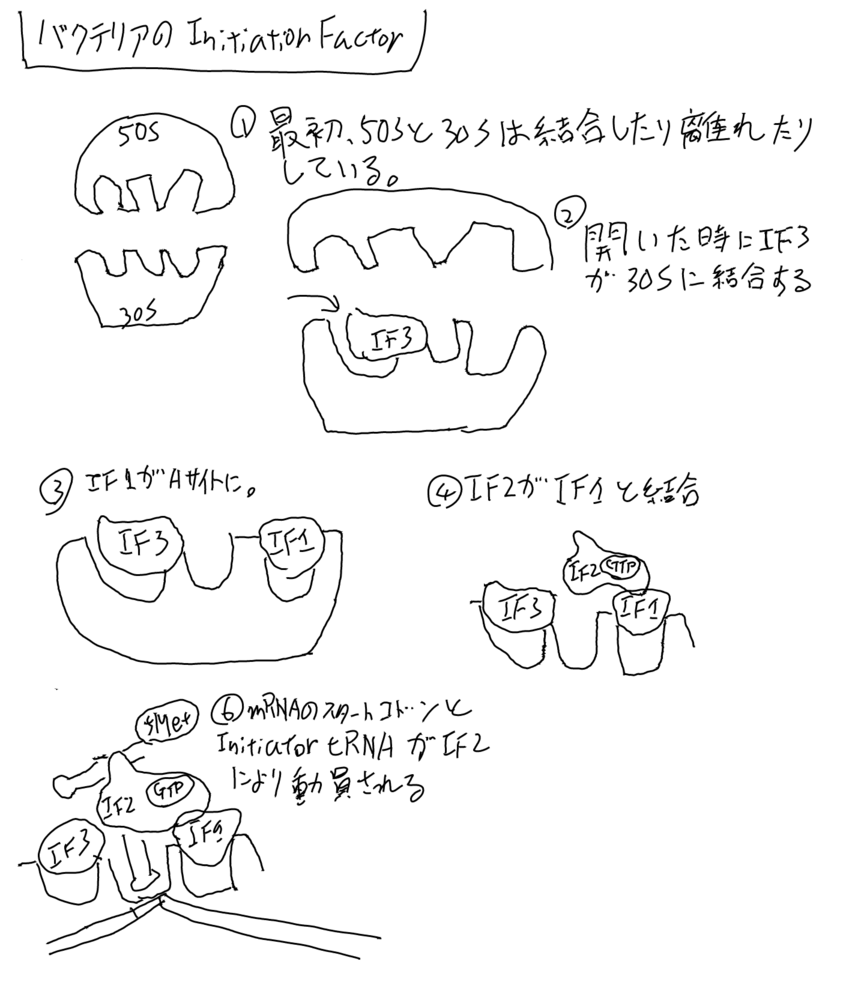 バクテリアの Initiation Factor
50S
30S
① 最初、50Sと30Sは結合したり離れたり
している。
② 開いた時にIF3
が30Sに結合する
IF3
③ IF1がAサイトに。
IF3
IF1
④ IF2がIF1と結合
IF2 GTP
IF3
IF1
fMet
⑥ mRNAのスタートコドンと
Initiator tRNAがIF2
により動員される
IF2 GTP
IF3
IF1